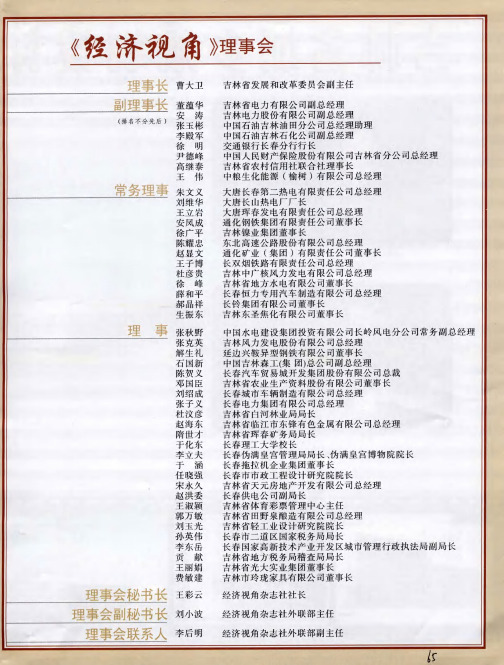 《经济视角》理事会
理事长 曹大卫 吉林省发展和改革委员会副主任
副理事长 董蕴华 吉林省电力有限公司副总经理
(排名不分先后) 安 涛 吉林电力股份有限公司副总经理
张玉彬 中国石油吉林油田分公司总经理助理
李殿军 中国石油吉林石化公司副总经理
徐 明 交通银行长春分行行长
尹德峰 中国人民财产保险股份有限公司吉林省分公司总经理
高继泰 吉林省农村信用社联合社理事长
王 伟 中粮生化能源(榆树)有限公司总经理
常务理事 朱文义 大唐长春第二热电有限责任公司总经理
刘维华 大唐长山热电厂厂长
王立岩 大唐珲春发电有限责任公司总经理
安凤成 通化钢铁集团有限责任公司董事长
徐广平 吉林镍业集团董事长
陈耀忠 东北高速公路股份有限公司总经理
赵显文 通化矿业(集团)有限责任公司董事长
王子博 长双烟铁路有限责任公司总经理
杜彦贵 吉林中广核风力发电有限公司总经理
徐 峰 吉林省地方水电有限公司董事长
薛和平 长春恒力专用汽车制造有限公司总经理
郝晶祥 长铃集团有限公司董事长
生振东 吉林东圣焦化有限公司董事长
理 事 张秋野 中国水电建设集团投资有限公司长岭风电分公司常务副总经理
张克英 吉林风力发电股份有限公司总经理
解生礼 延边兴鞍异型钢铁有限公司董事长
石国新 中国吉林森工(集团)总公司副总经理
陈贺义 长春汽车贸易城开发集团股份有限公司总裁
邓国臣 吉林省农业生产资料股份有限公司董事长
刘绍成 长春城市车辆制造有限公司总经理
张子义 长春电力集团有限公司总经理
杜汶彦 吉林省白河林业局局长
赵海东 吉林省临江市东锋有色金属有限公司总经理
隋世才 吉林省珲春矿务局局长
于化东 长春理工大学校长
李立夫 长春伪满皇宫管理局局长、伪满皇宫博物院院长
于 涵 长春拖拉机企业集团董事长
任晓强 长春市市政工程设计研究院院长
宋永久 吉林省天元房地产开发有限公司总经理
赵洪委 长春供电公司副局长
王淑颖 吉林省体育彩票管理中心主任
郭万敏 吉林省田野泉酿造有限公司总经理
刘玉光 吉林省轻工业设计研究院院长
孙英伟 长春市二道区国家税务局局长
李东岳 长春国家高新技术产业开发区城市管理行政执法局副局长
贡 献 吉林省地方税务局稽查局局长
王丽娟 吉林省光大实业集团董事长
费敏建 吉林市玲珑家具有限公司董事长
理事会秘书长 王彩云 经济视角杂志社社长
理事会副秘书长 刘小波 经济视角杂志社外联部主任
理事会联系人 李后明 经济视角杂志社外联部副主任
65